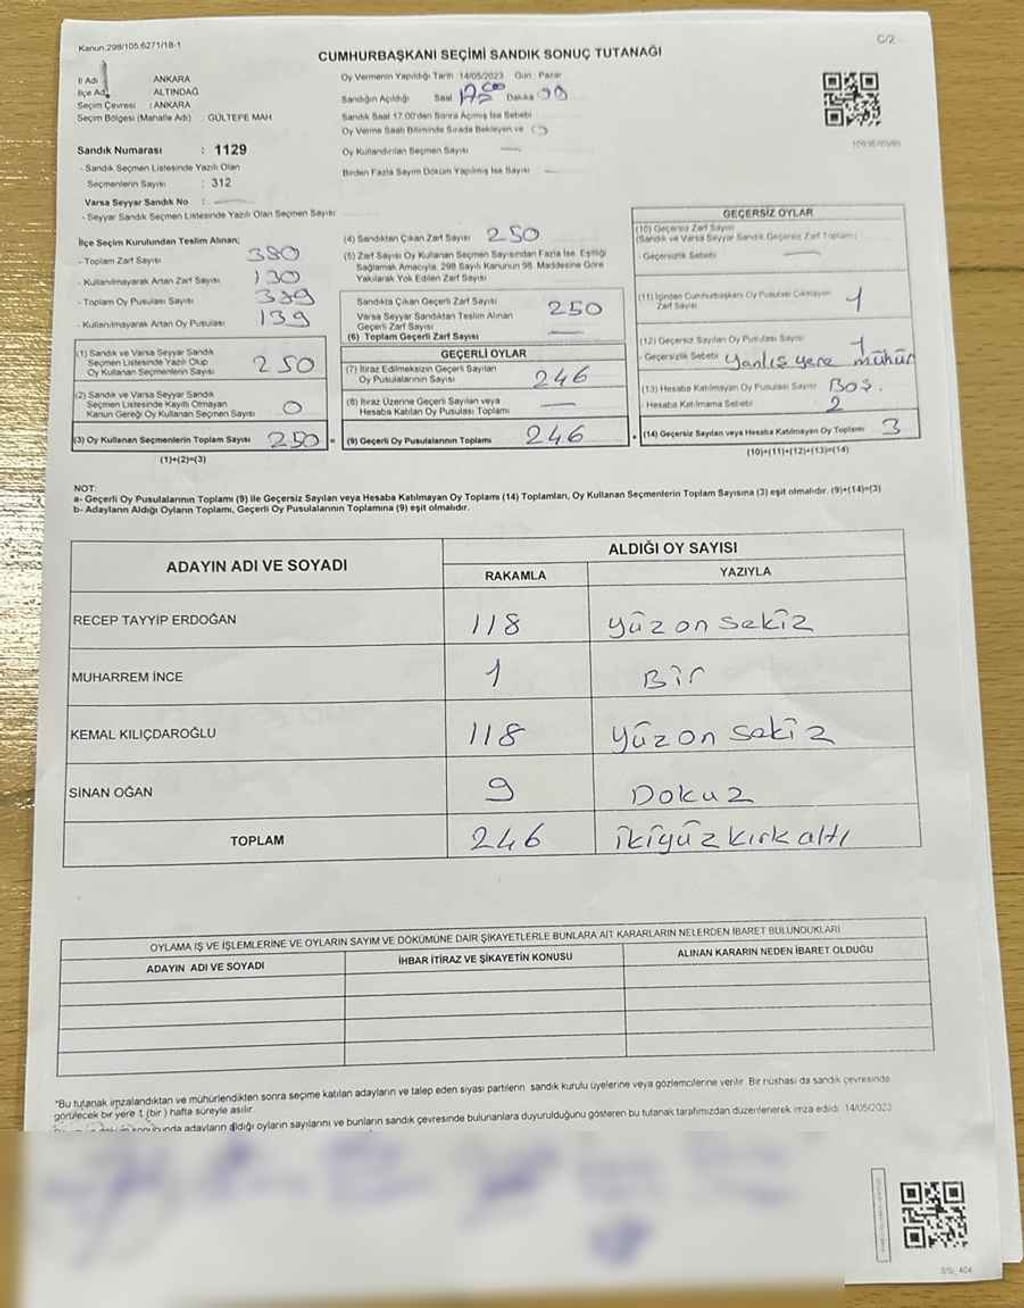 Kanun.298/105.6271/18-1
C/2
CUMHURBAŞKANI SEÇİMİ SANDIK SONUÇ TUTANAĞI
İl Adı ANKARA
İlçe Adı ALTINDAĞ
Seçim Çevresi : ANKARA
Seçim Bölgesi (Mahalle Adı) : GÜLTEPE MAH
Oy Vermenin Yapıldığı Tarih : 14/05/2023 Gün : Pazar
Sandığın Açıldığı Saat 17:00 Dakika
Sandık Saat 17.00'den Sonra Açılmış İse Sebebi
Oy Verme Saati Bitiminde Sırada Bekleyen ve
Oy Kullandırılan Seçmen Sayısı —
Birden Fazla Sayım Döküm Yapılmış İse Sayısı —
Sandık Numarası : 1129
- Sandık Seçmen Listesinde Yazılı Olan
Seçmenlerin Sayısı : 312
Varsa Seyyar Sandık No : —
- Seyyar Sandık Seçmen Listesinde Yazılı Olan Seçmen Sayısı
İlçe Seçim Kurulundan Teslim Alınan;
- Toplam Zarf Sayısı 380
- Kullanılmayarak Artan Zarf Sayısı 130
- Toplam Oy Pusulası Sayısı 389
- Kullanılmayarak Artan Oy Pusulası 139
(1) Sandık ve Varsa Seyyar Sandık
Seçmen Listesinde Yazılı Olup
Oy Kullanan Seçmenlerin Sayısı 250
(2) Sandık ve Varsa Seyyar Sandık
Seçmen Listesinde Kayıtlı Olmayan
Kanun Gereği Oy Kullanan Seçmen Sayısı 0
(3) Oy Kullanan Seçmenlerin Toplam Sayısı 250
(1)+(2)=(3)
(4) Sandıktan Çıkan Zarf Sayısı 250
(5) Zarf Sayısı Oy Kullanan Seçmen Sayısından Fazla İse, Eşitliği
Sağlamak Amacıyla, 298 Sayılı Kanunun 98. Maddesine Göre
Yakılarak Yok Edilen Zarf Sayısı
Sandıkta Çıkan Geçerli Zarf Sayısı 250
Varsa Seyyar Sandıktan Teslim Alınan
Geçerli Zarf Sayısı —
(6) Toplam Geçerli Zarf Sayısı
GEÇERLİ OYLAR
(7) İtiraz Edilmeksizin Geçerli Sayılan
Oy Pusulalarının Sayısı 246
(8) İtiraz Üzerine Geçerli Sayılan veya
Hesaba Katılan Oy Pusulası Toplamı —
(9) Geçerli Oy Pusulalarının Toplamı 246
GEÇERSİZ OYLAR
(10) Geçersiz Zarf Sayısı
(Sandık ve Varsa Seyyar Sandık Geçersiz Zarf Toplamı)
- Geçersizlik Sebebi —
(11) İçinden Cumhurbaşkanı Oy Pusulası Çıkmayan
Zarf Sayısı 1
(12) Geçersiz Sayılan Oy Pusulası Sayısı 1
Geçersizlik Sebebi Yanlış yere mühür
(13) Hesaba Katılmayan Oy Pusulası Sayısı BOŞ.
- Hesaba Katılmama Sebebi 2
(14) Geçersiz Sayılan veya Hesaba Katılmayan Oy Toplamı 3
(10)+(11)+(12)+(13)=(14)
NOT:
a- Geçerli Oy Pusulalarının Toplamı (9) ile Geçersiz Sayılan veya Hesaba Katılmayan Oy Toplamı (14) Toplamları, Oy Kullanan Seçmenlerin Toplam Sayısına (3) eşit olmalıdır. (9)+(14)=(3)
b- Adayların Aldığı Oyların Toplamı, Geçerli Oy Pusulalarının Toplamına (9) eşit olmalıdır.
ADAYIN ADI VE SOYADI
ALDIĞI OY SAYISI
RAKAMLA YAZIYLA
RECEP TAYYİP ERDOĞAN 118 yüz on sekiz
MUHARREM İNCE 1 Bir
KEMAL KILIÇDAROĞLU 118 yüz on sekiz
SİNAN OĞAN 9 Dokuz
TOPLAM 246 ikiyüz kırk altı
OYLAMA İŞ VE İŞLEMLERİNE VE OYLARIN SAYIM VE DÖKÜMÜNE DAİR ŞİKAYETLERLE BUNLARA AİT KARARLARIN NELERDEN İBARET BULUNDUKLARI
ADAYIN ADI VE SOYADI İHBAR İTİRAZ VE ŞİKAYETİN KONUSU ALINAN KARARIN NEDEN İBARET OLDUĞU
*Bu tutanak imzalandıktan ve mühürlendikten sonra seçime katılan adayların ve talep eden siyasi partilerin sandık kurulu üyelerine veya gözlemcilerine verilir. Bir nüshası da sandık çevresinde
görülecek bir yere 1 (bir) hafta süreyle asılır.
adayların aldığı oyların sayılarını ve bunların sandık çevresinde bulunanlara duyurulduğunu gösteren bu tutanak tarafımızdan düzenlenerek imza edildi. 14/05/2023